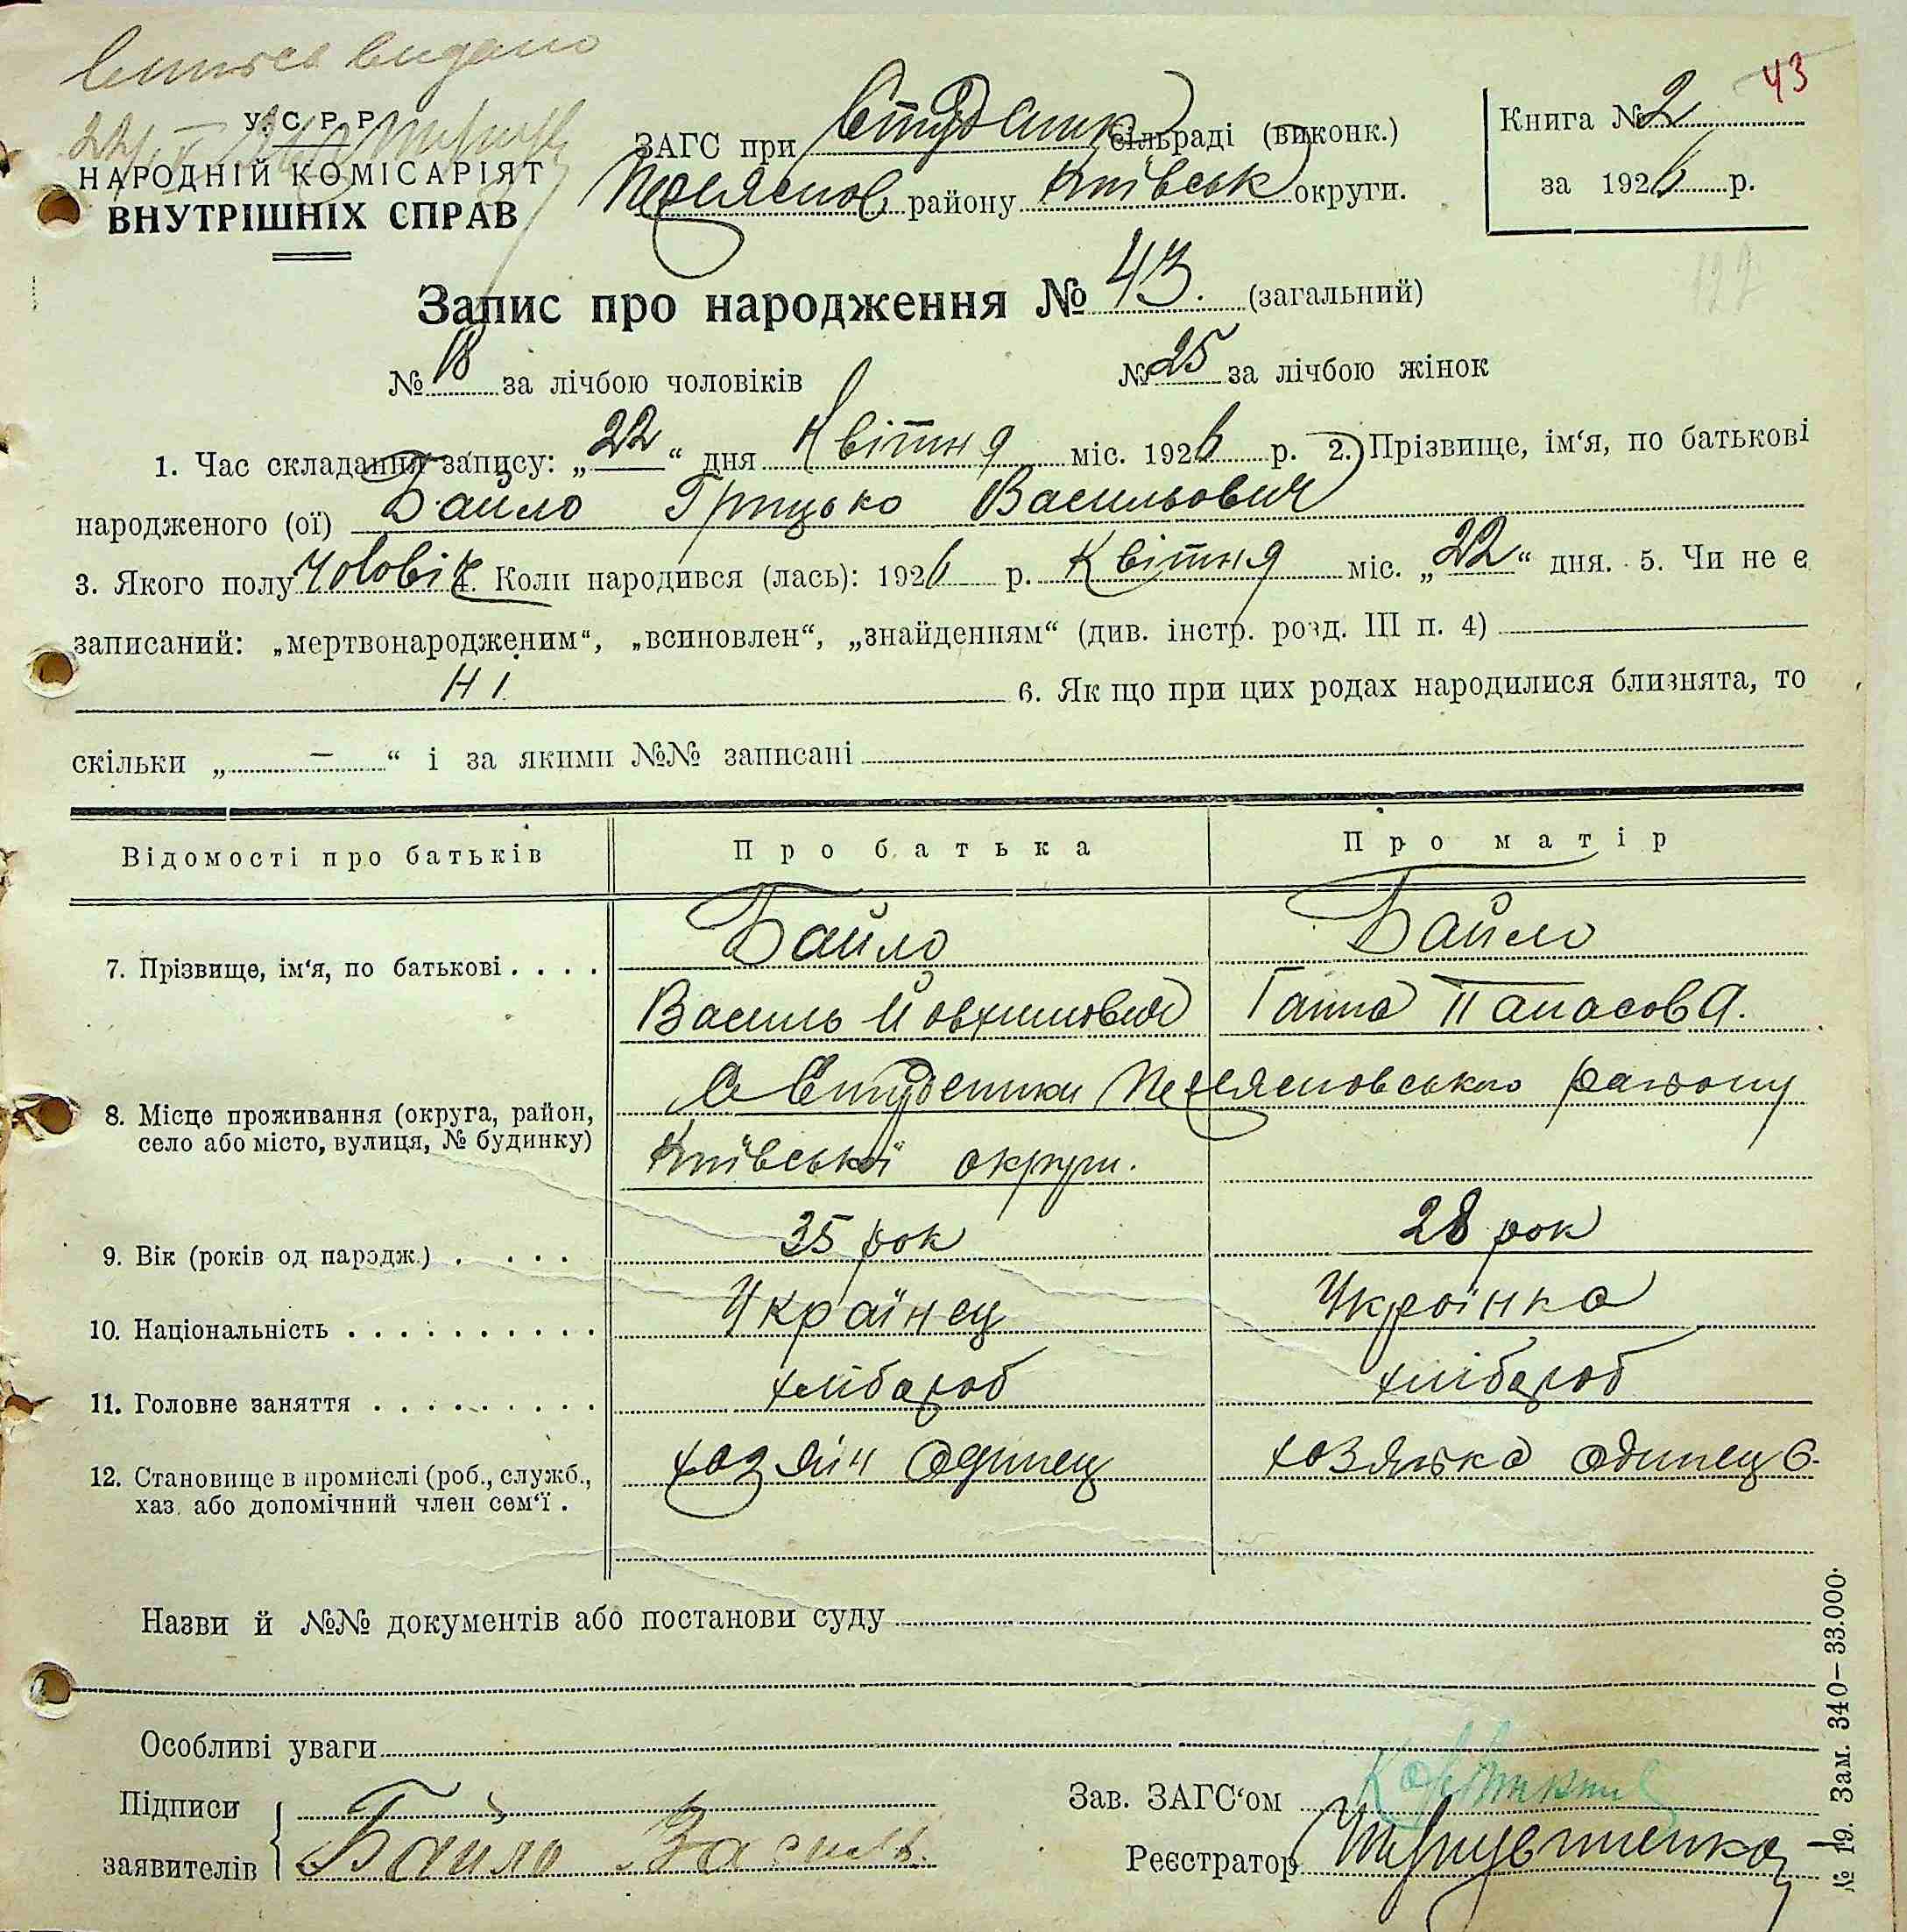 виписа видано
43
У. С. Р. Р.
НАРОДНІЙ КОМІСАРІЯТ
ВНУТРІШНІХ СПРАВ
ЗАГС при Студеник сільраді (виконк.)
Переяслов району Київськ округи.
Книга № 2
за 1926 р.
Запис про народження № 43. (загальний)
№ 18 за лічбою чоловіків № 25 за лічбою жінок
1. Час складання запису: „22“ дня Квітня міс. 1926 р. 2. Прізвище, ім‘я, по батькові
народженого (ої) Байло Грицько Васильович
3. Якого полу Чоловік 4. Коли народився (лась): 1926 р. Квітня міс. „22“ дня. 5. Чи не є
записаний: „мертвонародженим“, „всиновлен“, „знайденням“ (див. інстр. розд. III п. 4)
Ні. 6. Як що при цих родах народилися близнята, то
скільки „ — “ і за якими №№ записані
Відомості про батьків Про батька Про матір
7. Прізвище, ім‘я, по батькові . . . . Байло Байло
Василь Йовхимович Ганна Панасова.
8. Місце проживання (округа, район, село або місто, вулиця, № будинку) с Студеники Переясловського району
Київської округи.
9. Вік (років од народж.) . . . . . 35 рок 28 рок
10. Національність . . . . . . . . . . . Українец Українка
11. Головне заняття . . . . . . . . . хлібороб хлібороб
12. Становище в промислі (роб., служб., хаз. або допомічний член сем‘ї . хозяїн одинец хозяйка одинец
Назви й №№ документів або постанови суду
Особливі уваги
Підписи
заявителів Байло Василь.
Зав. ЗАГС‘ом
Реєстратор
№ 19. Зам. 340–33.000.